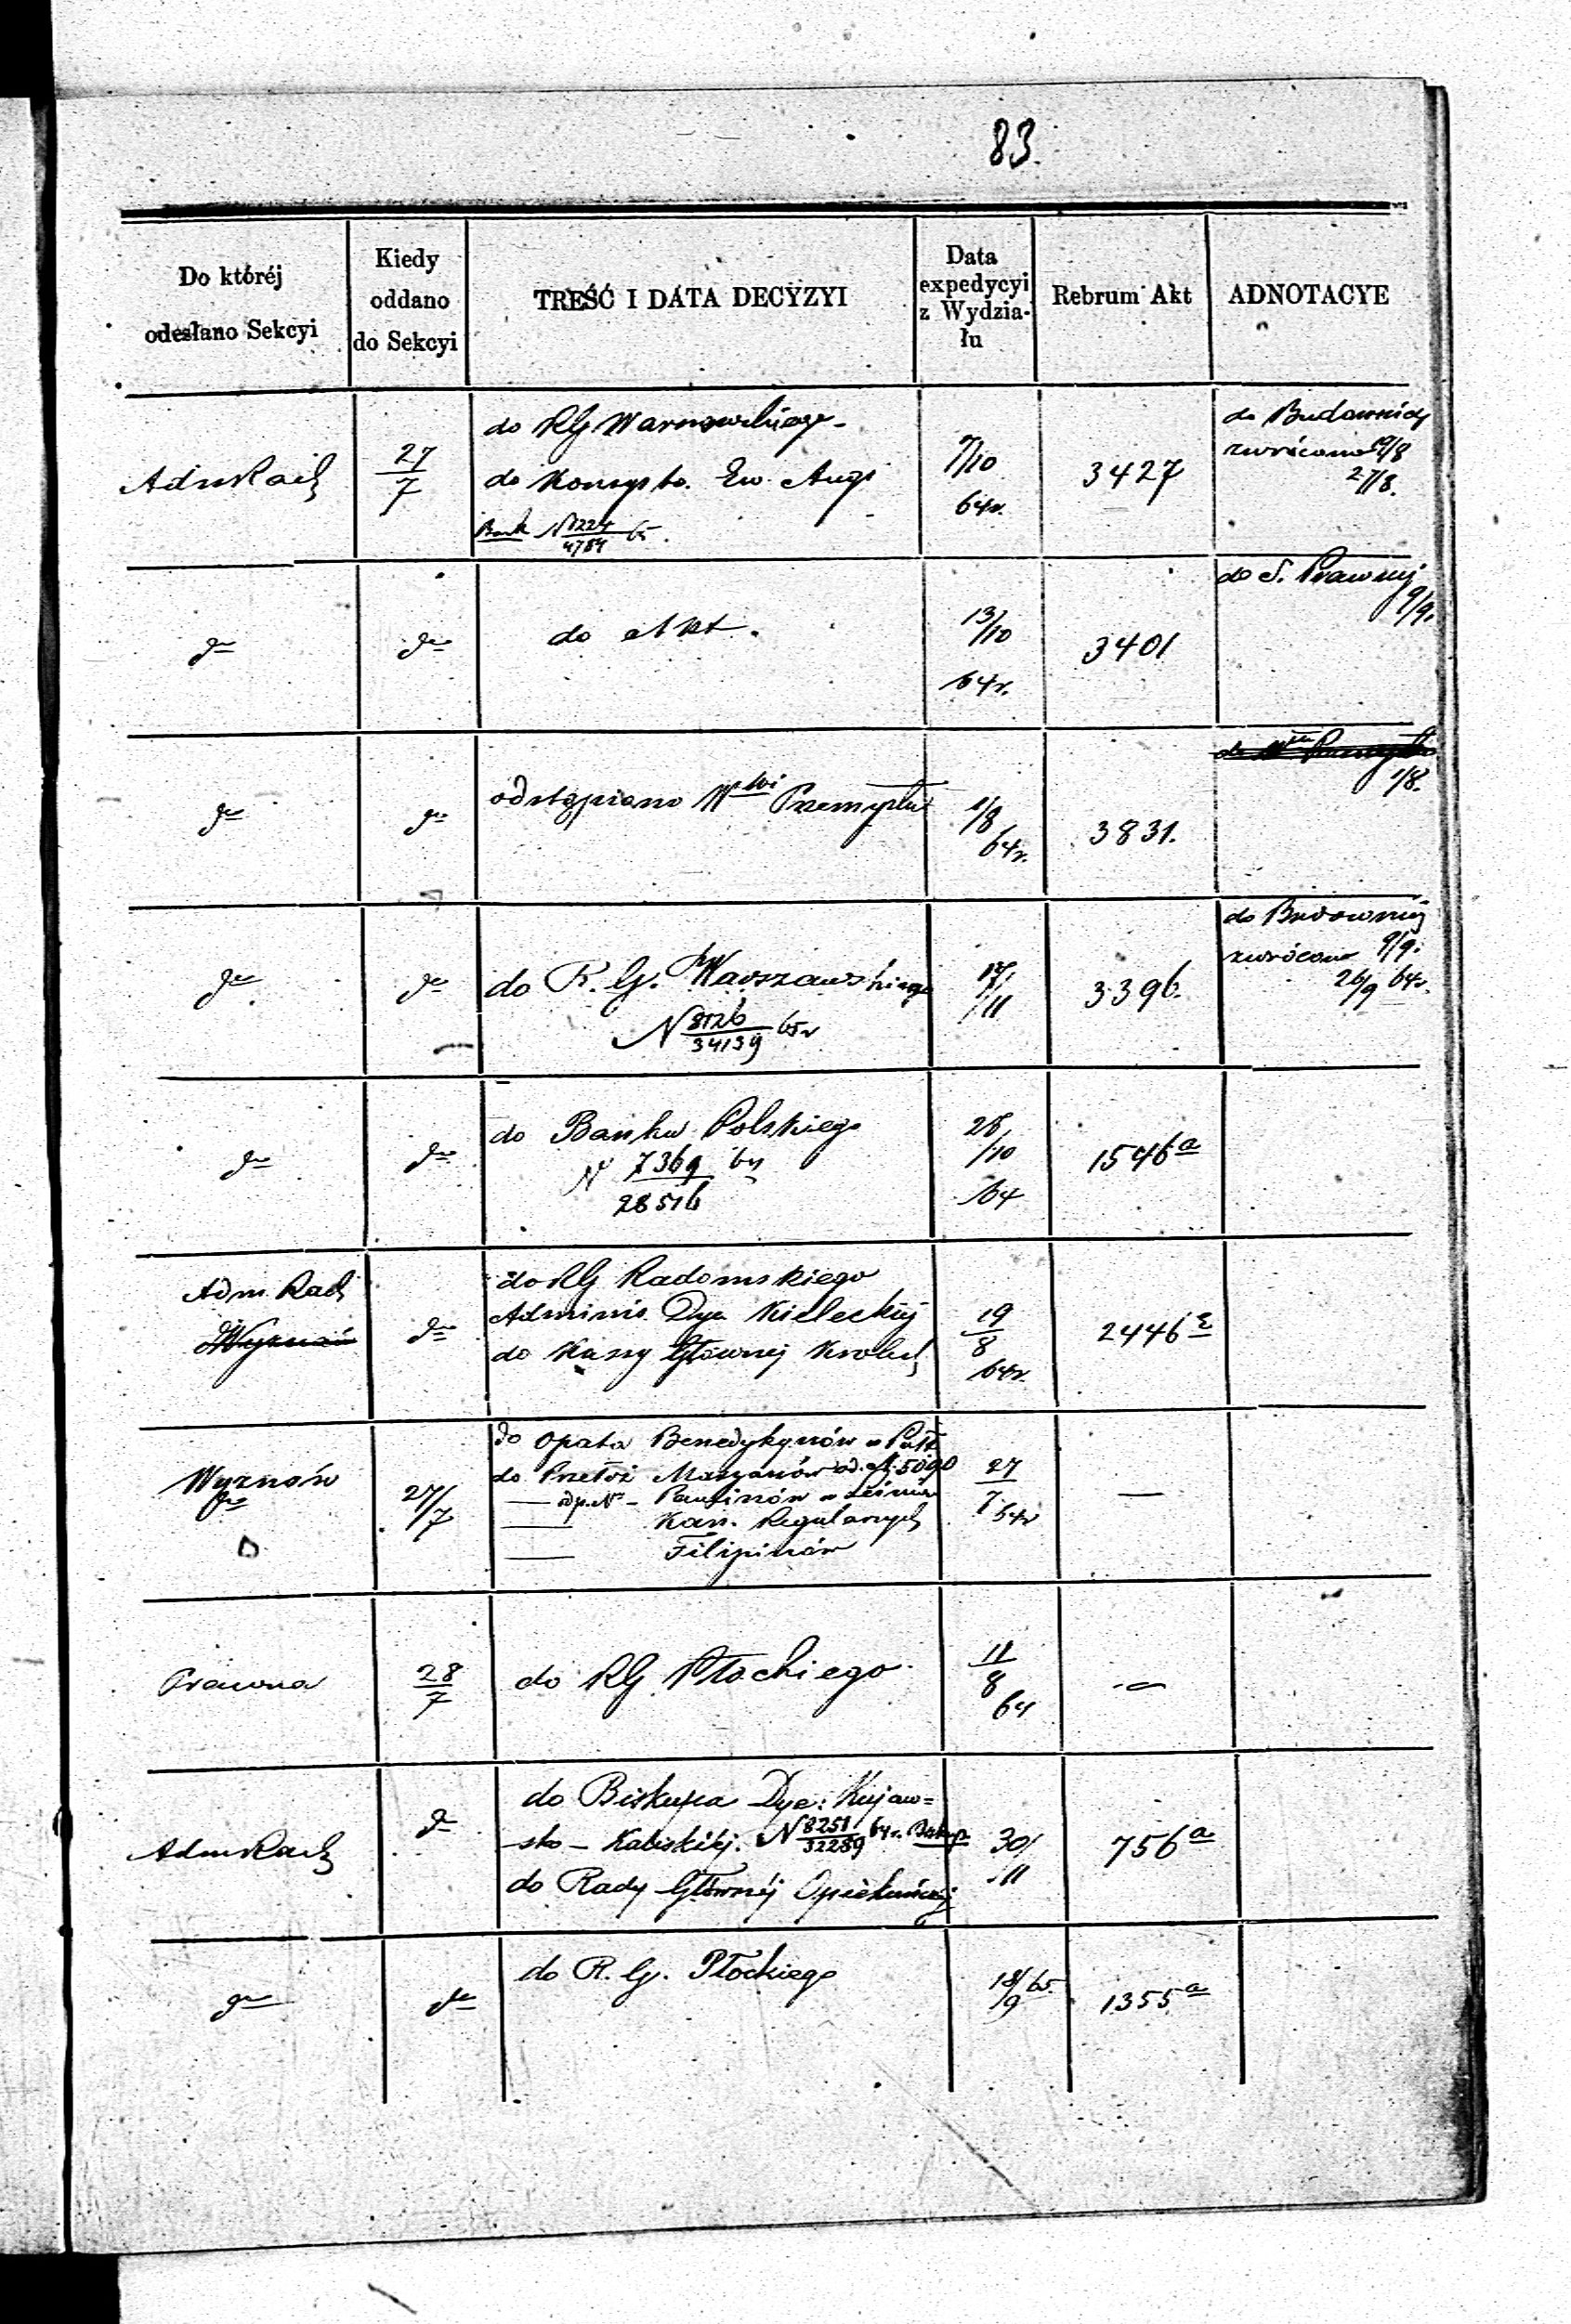 83.
Do któréj
odesłano Sekcyi
Kiedy
oddano
do Sekcyi
TREŚĆ I DATA DECYZYI
Data
expedycyi
z Wydzia-
łu
Rebrum Akt
ADNOTACYE
27/7
do RG Warszawskiego
do Konsysto. Ew. Augs
Bank N 1224/4784 65.
7/10
64r.
3427
do Budowniczej
zwrócono 19/8
27/8.
do
do
do Akt.
13/10
64r.
3401
do S. Prawnej
9/9.
do
do
odstąpiono Włwi Przemysłu
1/8
64r.
3831.
1/8.
do
do
do R. G. Warszawskiego
N 8126/34139 65r
17/11
3396.
do Budowniczej
zwrócono 9/9.
26/9 64r.
do
do
do Banku Polskiego
N 7369/28516 64
28/10
64
1546 a
Adm. Rach
Wyznań
do
do RG Radomskiego
Adminis. Dye. Kieleckiéj
do Kassy Głównej Królest
19/8
64r.
2446
Wyznań
27/7
do Opata Benedyktynów w Pułt
do Przełoż Maryanów od. N. 5090
— odp. No — Paulinów w Leśnie
— Kan. Regularnych
— Filipinów
27/7 64r
—
Prawna
28/7
do RG Płockiego
11/8
64
—
Adm Rach
do
do Biskupa Dye: Kujaw=
sko - Kaliskiéj. N 8251/32289 64r. Biskup
do Rady Głównéj Opiekuńczéj
30/11
756 a
do
do
do R. G. Płockiego
18/9 65.
1355 a